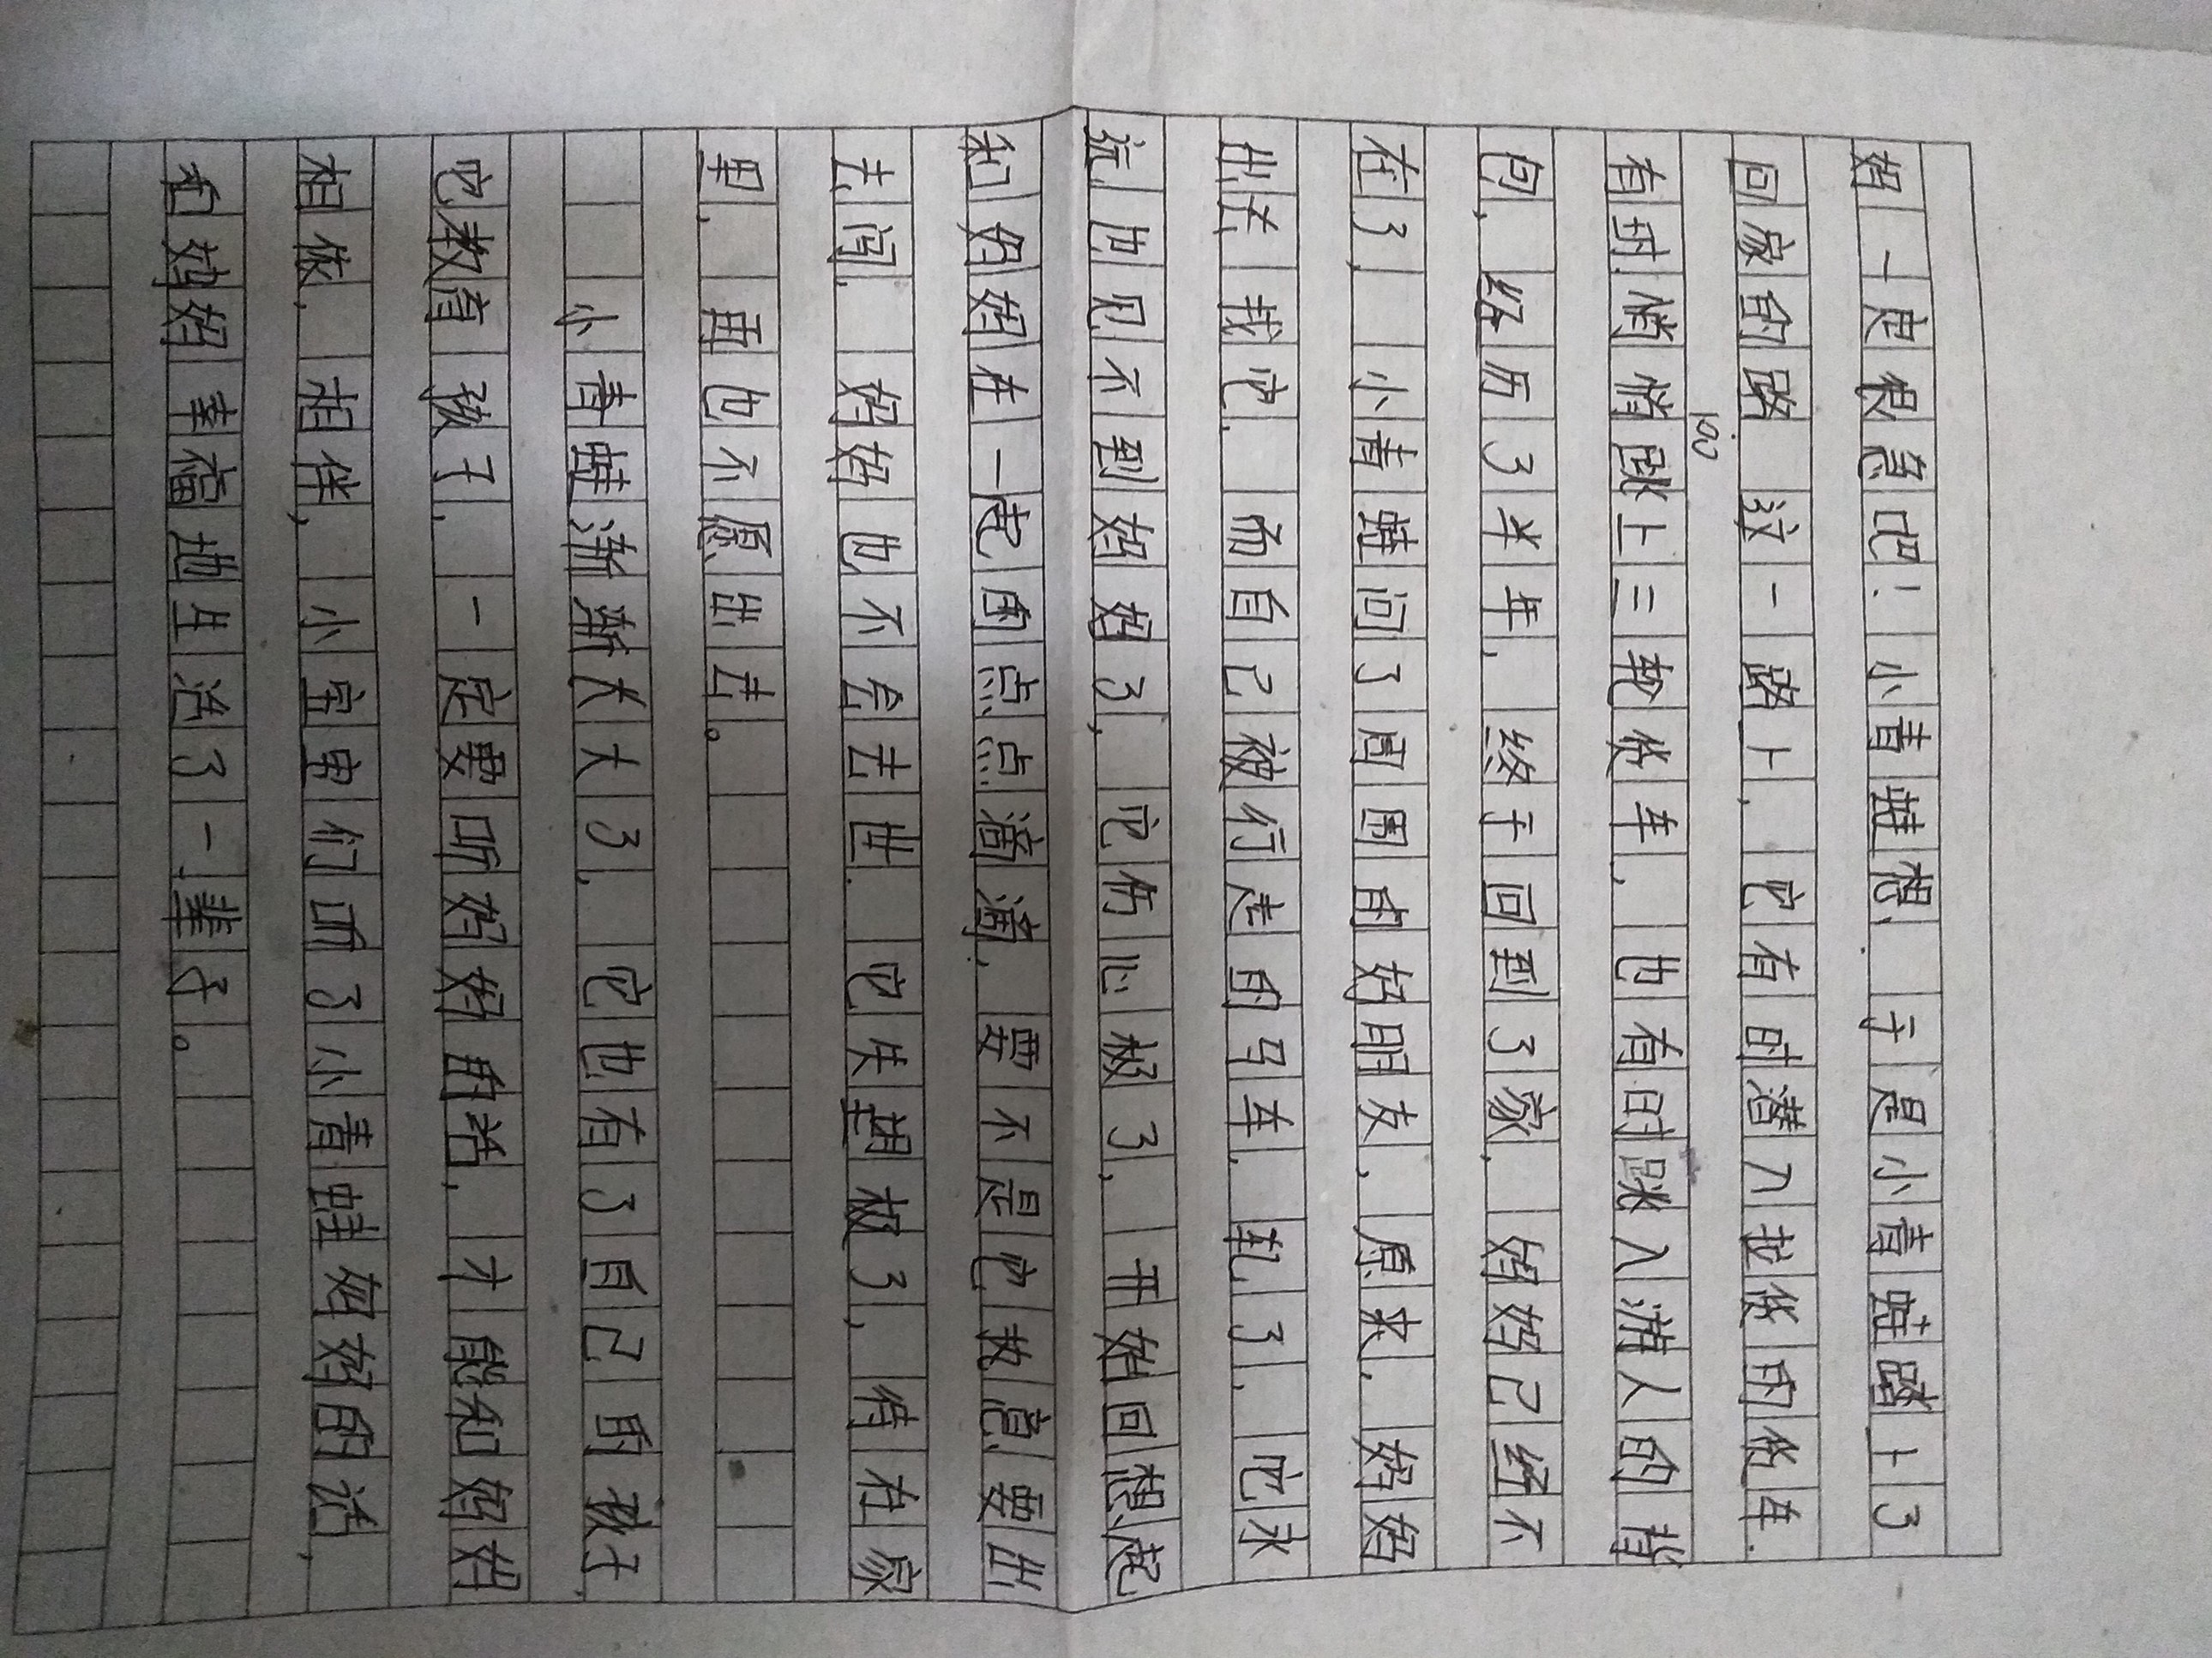 妈一定很急吧！小青蛙想，于是小青蛙踏上了
回家的路。这一路上，它有时潜入拉货的货车，
有时悄悄跳上三轮货车，也有时跳入满人的背
400
包，经历了半年，终于回到了家，妈妈已经不
在了，小青蛙问了周围的好朋友，原来，妈妈
出去找它，而自己被行走的马车，轧了，它永
远也见不到妈妈了，它伤心极了，开始回想起
和妈妈在一起的点点滴滴，要不是它执意要出
去闯，妈妈也不会去世，它失望极了，待在家
里，再也不愿出去。
小青蛙渐渐长大了，它也有了自己的孩子，
它教育孩子，一定要听妈妈的话，才能和妈妈
相依，相伴，小宝宝们听了小青蛙妈妈的话，
和妈妈幸福地生活了一辈子。